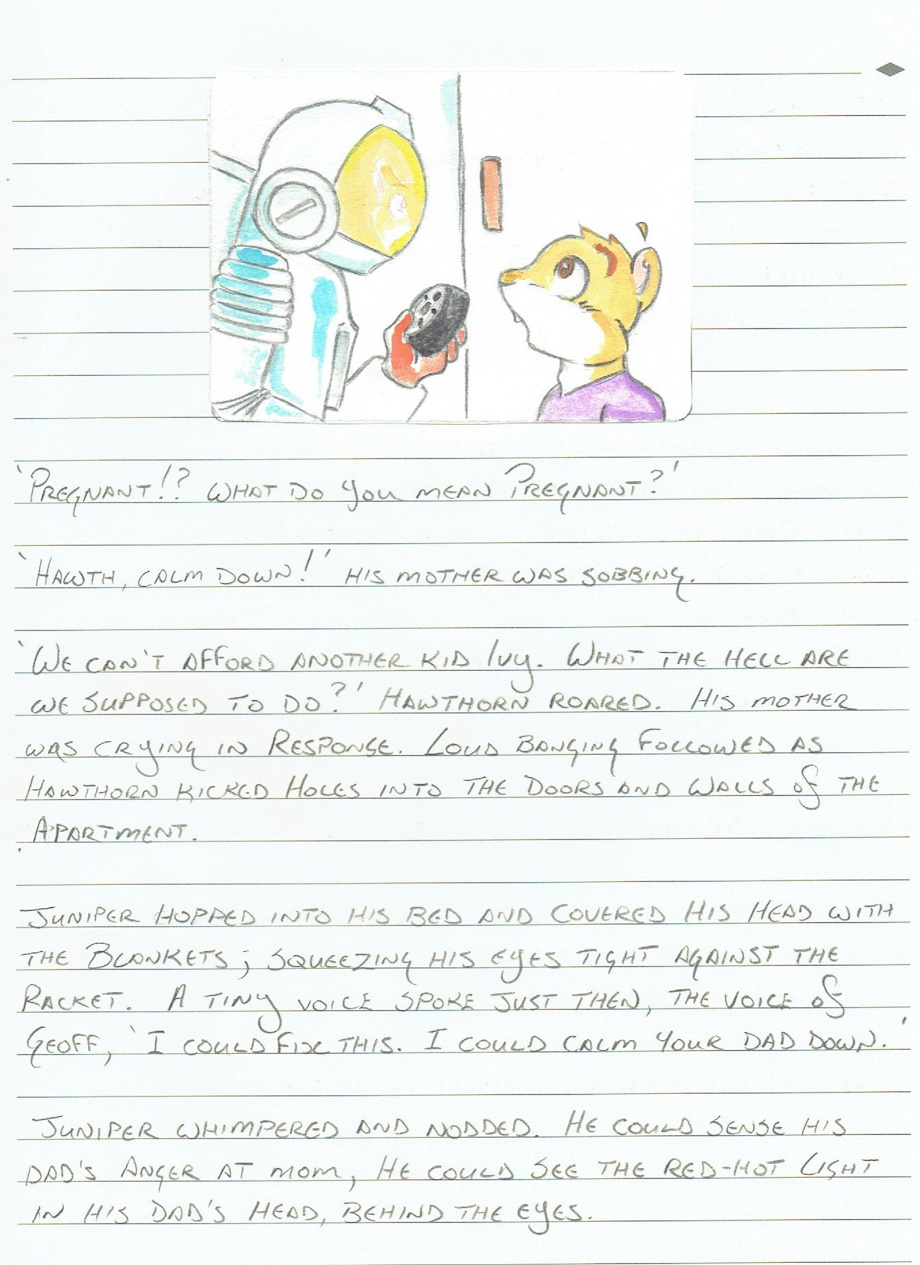 'Pregnant!? What do you mean Pregnant?'
'Hawth, calm down!' His mother was sobbing.
'We can't afford another kid Ivy. What the hell are
we supposed to do?' Hawthorn roared. His mother
was crying in Response. Loud Banging Followed as
Hawthorn kicked Holes into the Doors and Walls of the
Apartment.
Juniper hopped into his bed and covered his head with
the Blankets; squeezing his eyes tight against the
Racket. A tiny voice spoke just then, the voice of
Geoff, 'I could fix this. I could calm your dad down.'
Juniper whimpered and nodded. He could sense his
dad's anger at mom, He could see the red-hot light
in his dad's head, behind the eyes.